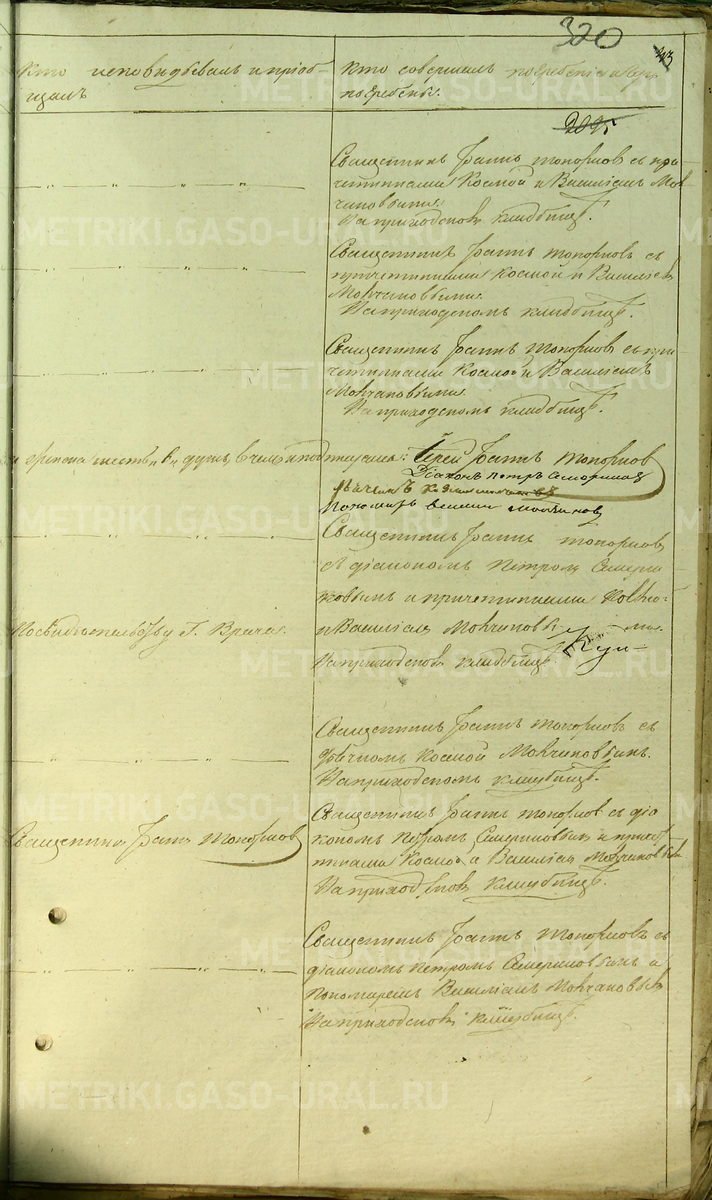 320
43
Кто исповидывалъ и пріоб-
щалъ
Кто совершалъ погребеніе и гдѣ
погребены.
2095
Священникъ Іоаннъ Топорковъ съ при-
четниками Космой и Василіемъ Мол-
чановыми.
На приходскомъ кладбищѣ.
Священникъ Іоаннъ Топорковъ съ
причетниками Космой и Василіемъ
Молчановыми.
На приходскомъ кладбищѣ.
Священникъ Іоаннъ Топорковъ съ при-
четниками Космой и Василіемъ
Молчановыми.
На приходскомъ кладбищѣ.
душъ, въ чемъ и подписуемся: Іерей Іоаннъ Топорковъ
Діаконъ Петръ
Пономарь Василій Молчановъ
Священникъ Іоаннъ Топорковъ
съ діакономъ Петромъ
и причетниками Космой
и Василіемъ Молчановы-
ми.
На приходскомъ кладбищѣ.
По свидѣтельству Г. Врача.
Священникъ Іоаннъ Топорковъ съ
дьячкомъ Космой Молчановымъ.
На приходскомъ кладбищѣ.
Священникъ Іоаннъ Топорковъ
Священникъ Іоаннъ Топорковъ съ діа-
кономъ Петромъ и причет-
никами Космой и Василіемъ Молчановыми
На приходскомъ кладбищѣ.
Священникъ Іоаннъ Топорковъ съ
діакономъ Петромъ и
Пономаремъ Василіемъ Молчановымъ
На приходскомъ кладбищѣ.
METRIKI.GASO-URAL.RU